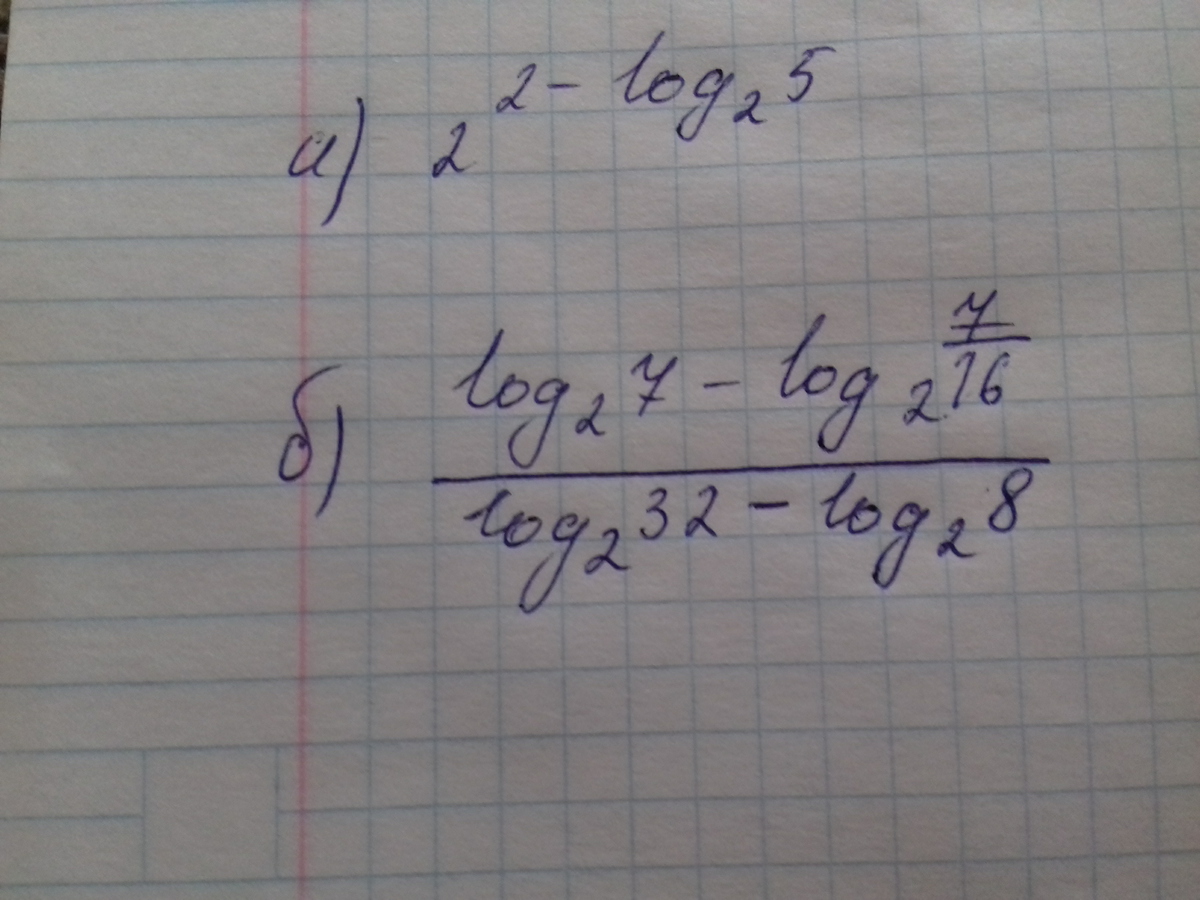 а) 2^{2 - log_2 5}
б) \frac{log_2 7 - log_2 \frac{7}{16}}{log_2 32 - log_2 8}